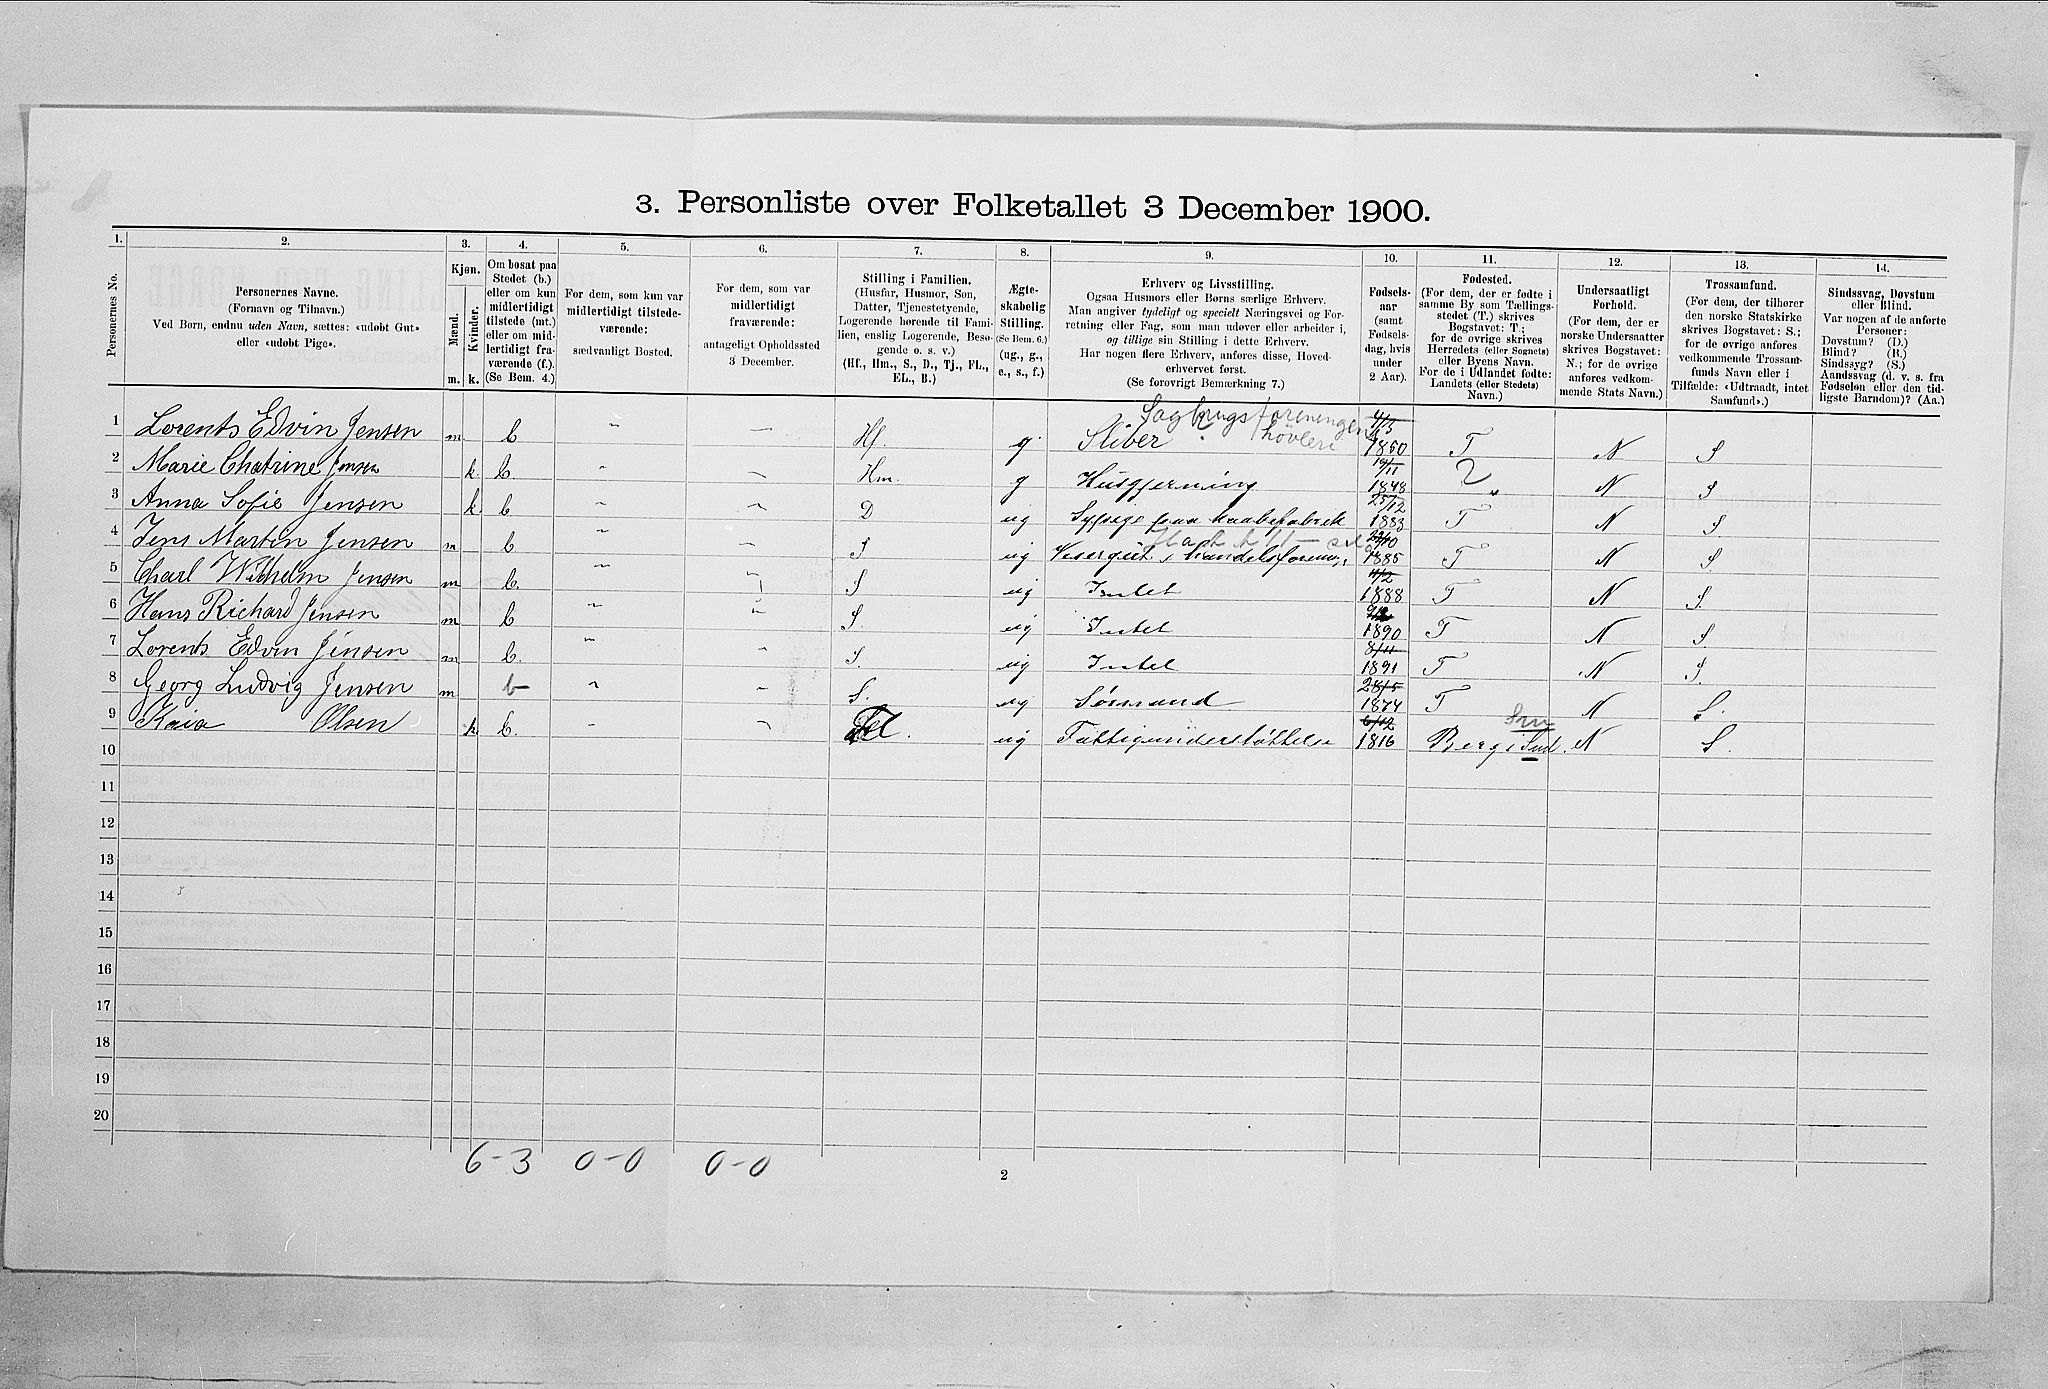 3. Personliste over Folketallet 3 December 1900.
1. 2. 3. 4. 5. 6. 7. 8. 9. 10. 11. 12. 13. 14.
Personernes No.
Personernes Navne.
(Fornavn og Tilnavn.)
Ved Børn, endnu uden Navn, sættes: «udøbt Gut»
eller «udøbt Pige».
Kjøn.
Mænd.
Kvinder.
m. k.
Om bosat paa
Stedet (b.)
eller om kun
midlertidigt
tilstede (mt.)
eller om mid-
lertidigt fra-
værende (f.).
(Se Bem. 4.)
For dem, som kun var
midlertidigt tilstede-
værende:
sædvanligt Bosted.
For dem, som var
midlertidigt
fraværende:
antageligt Opholdssted
3 December.
Stilling i Familien.
(Husfar, Husmor, Søn,
Datter, Tjenestetyende,
Logerende hørende til Fami-
lien, enslig Logerende, Besø-
gende o. s. v.)
(Hf., Hm., S., D., Tj., FL.,
EL., B.)
Ægte-
skabelig
Stilling.
(Se Bem. 6.)
(ug., g.,
e., s., f.)
Erhverv og Livsstilling.
Ogsaa Husmors eller Børns særlige Erhverv.
Man angiver tydeligt og specielt Næringsvei og For-
retning eller Fag, som man udøver eller arbeider i,
og tillige sin Stilling i dette Erhverv.
Har nogen flere Erhverv, anføres disse, Hoved-
erhvervet først.
(Se forøvrigt Bemærkning 7.)
Fødsels-
aar
(samt
Fødsels-
dag, hvis
under
2 Aar).
Fødested.
(For dem, der er fødte i
samme By som Tællings-
stedet (T.) skrives
Bogstavet: T.;
for de øvrige skrives
Herredets (eller Sognets)
eller Byens Navn.
For de i Udlandet fødte:
Landets (eller Stedets)
Navn.)
Undersaatligt
Forhold.
(For dem, der er
norske Undersaatter
skrives Bogstavet:
N.; for de øvrige
anføres vedkom-
mende Stats Navn.)
Trossamfund.
(For dem, der tilhører
den norske Statskirke
skrives Bogstavet: S.;
for de øvrige anføres
vedkommende Trossam-
funds Navn eller i
Tilfælde: «Udtraadt, intet
Samfund».)
Sindssvag, Døvstum
eller Blind.
Var nogen af de anførte
Personer:
Døvstum? (D.)
Blind? (B.)
Sindssyg? (S.)
Aandssvag (d. v. s. fra
Fødselen eller den tid-
ligste Barndom)? (Aa.)
Sagbrugsforeningen
høvleri
1 Lorents Edvin Jensen m. b Hf. g. Sliber 4/3 1850 T N S
2 Marie Chatrine Jensen k. b Hm. g Husgjerning 19/11 1848 " N S
3 Anna Sofie Jensen k. b D ug Sypige paa kaabefabrik 25/12 1883 T N S
4 Jens Marten Jensen m b S ug Visergut i handelsforen. 1885 T N S.
5 Charl Wilhelm Jensen m b. S ug Intet 11/2 1888 T N S.
6 Hans Richard Jensen m b S. ug Intet 1890 T N S.
7 Lorents Edvin Jensen m b. S. ug Intet 8/11 1891 T N S.
8 Georg Ludvig Jensen m b S. ug Sømand 28/5 1874 T N S.
9 Kaia Olsen k b. ug Fattigunderstøttelse 6/12 1816 Berg i Smd. N S.
10
11
12
13
14
15
16
17
18
19
20
6-3 0-0 0-0
2